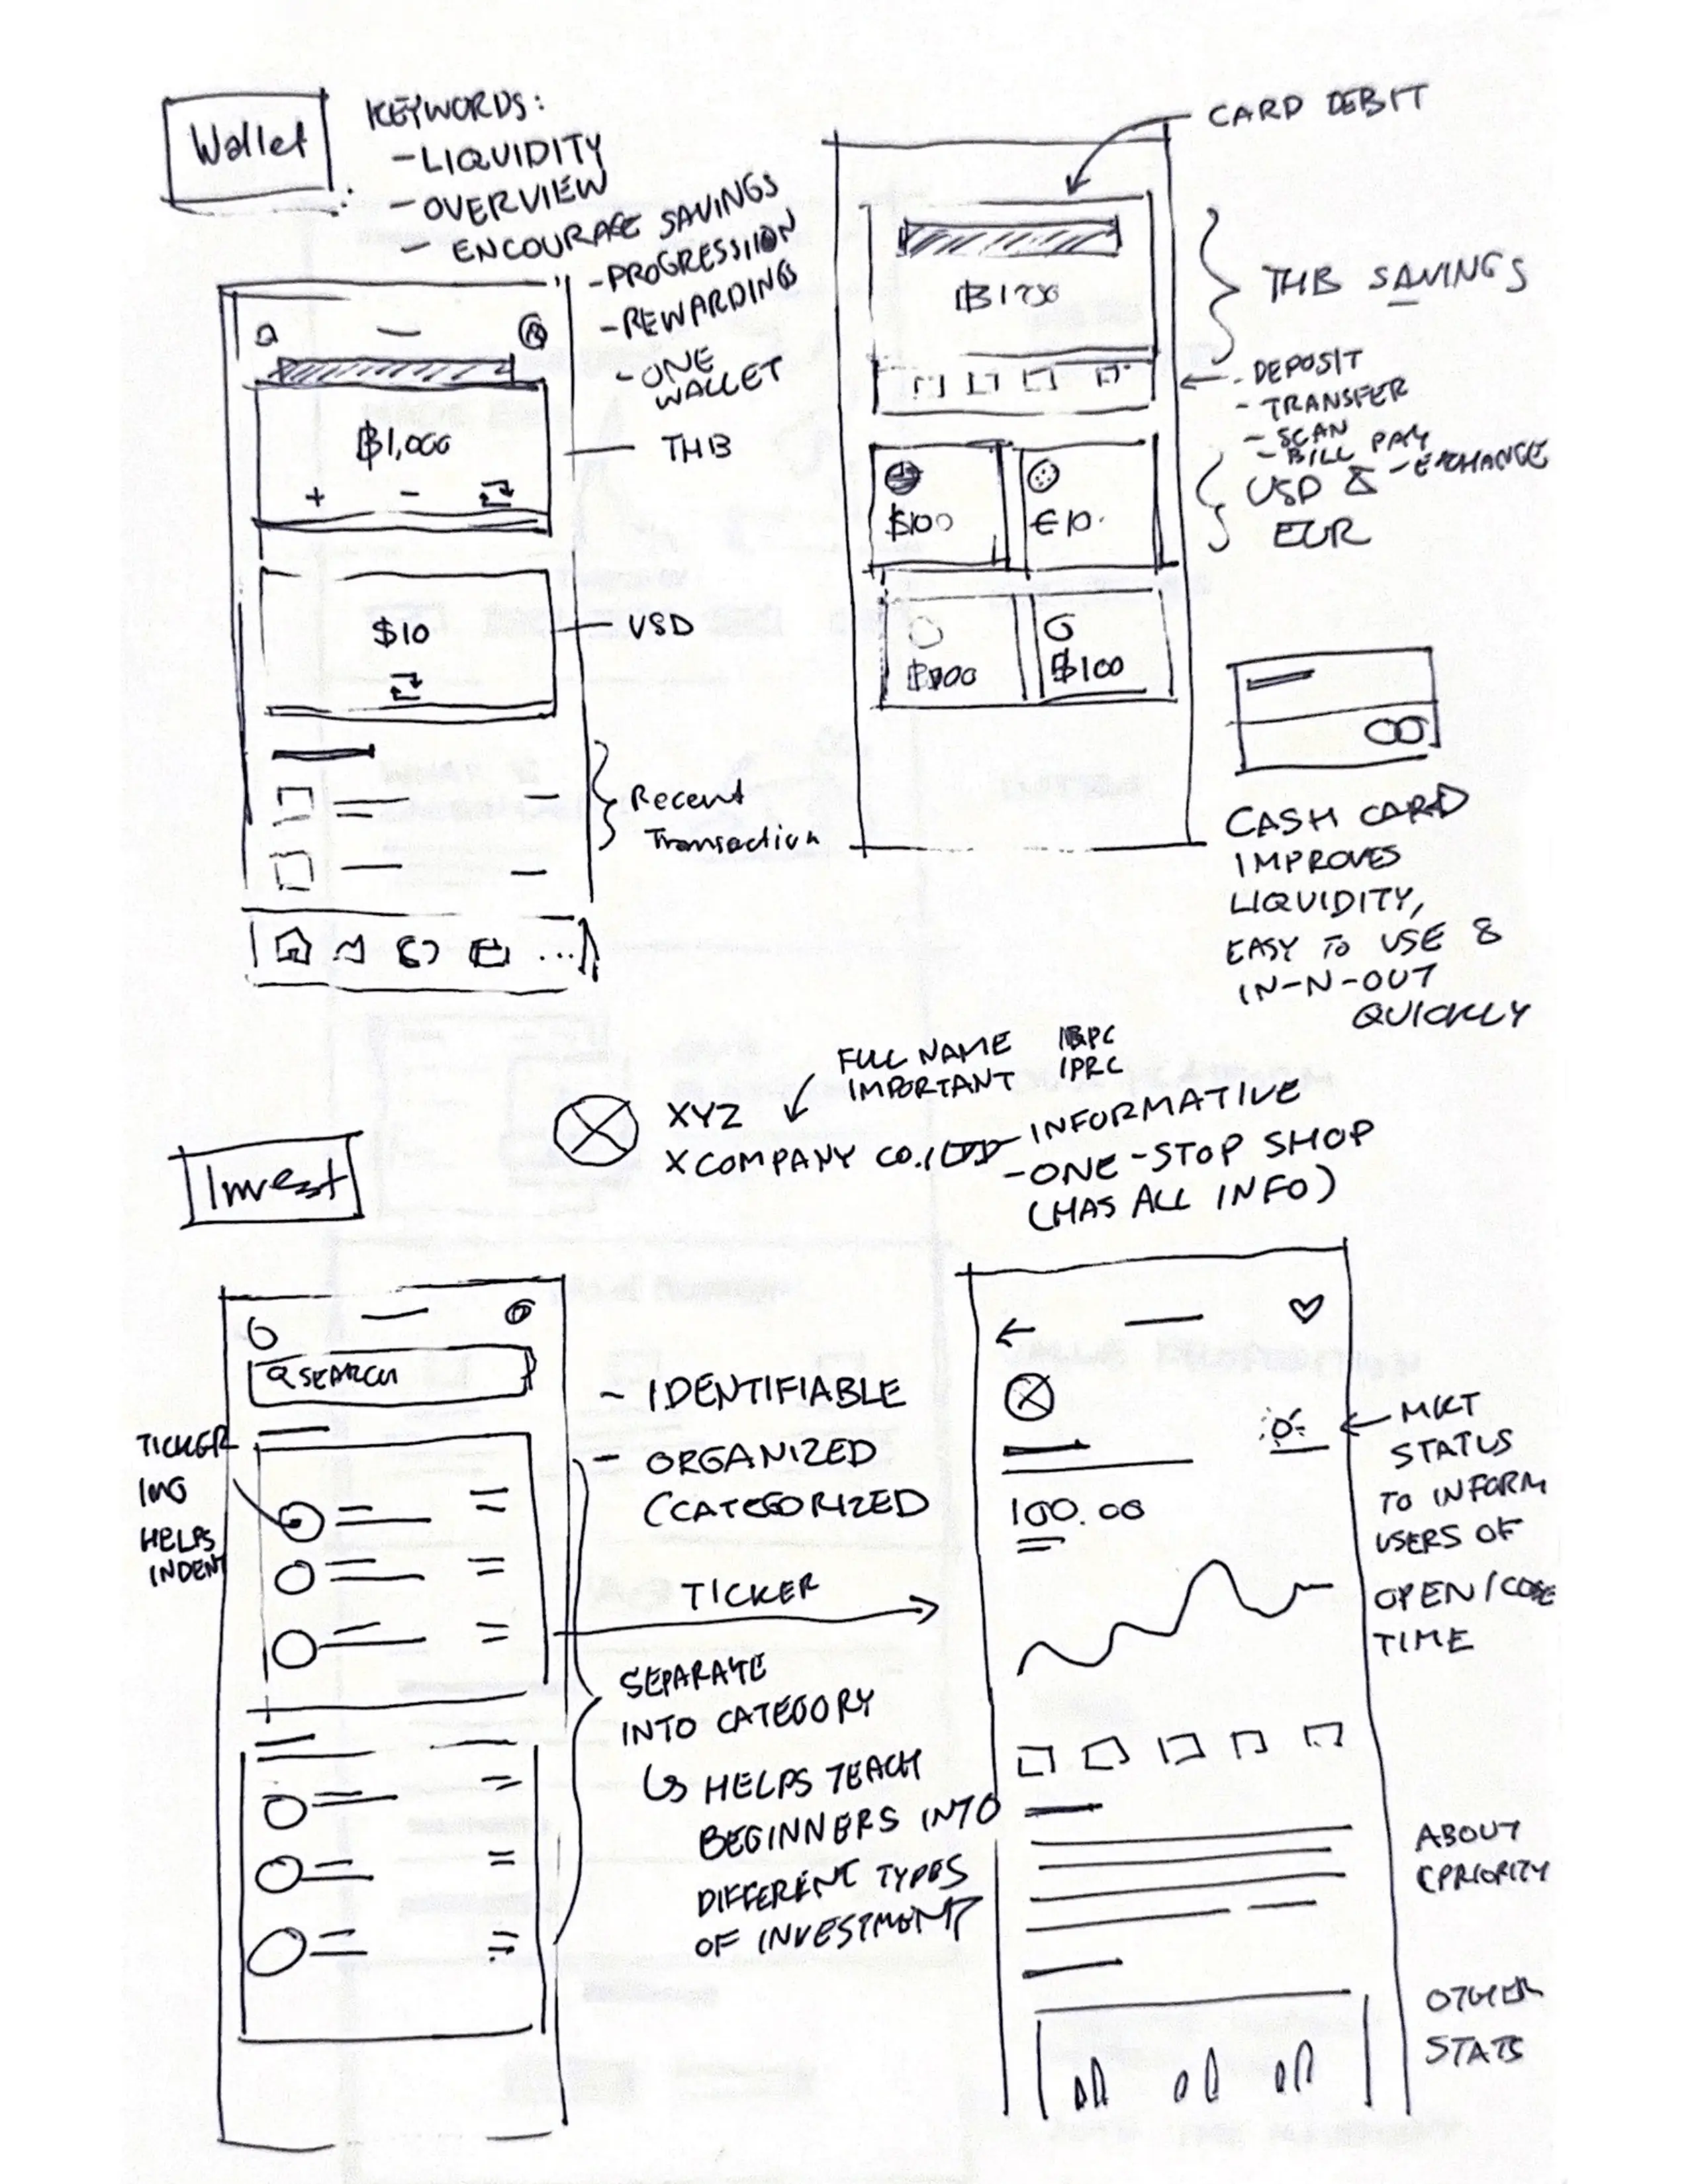 Wallet
KEYWORDS:
- LIQUIDITY
- OVERVIEW
- ENCOURAGE SAVINGS
- PROGRESSION
- REWARDING
- ONE
WALLET
฿1,000
+ -
THB
$10
USD
Recent
Transaction
...
CARD DEBIT
THB SAVINGS
- DEPOSIT
- TRANSFER
- SCAN
- BILL PAY
- EXCHANGE
USD &
EUR
$100
€10.
฿100
CASH CARD
IMPROVES
LIQUIDITY,
EASY TO USE &
IN-N-OUT
QUICKLY
Invest
XYZ
X COMPANY CO. LTD
FULL NAME
IMPORTANT
IPRC
- INFORMATIVE
- ONE-STOP SHOP
(HAS ALL INFO)
SEARCH
TICKER
IMG
HELPS
INDENT
- IDENTIFIABLE
- ORGANIZED
(CATEGORIZED
TICKER
SEPARATE
INTO CATEGORY
HELPS TEACH
BEGINNERS INTO
DIFFERENT TYPES
OF INVESTMENT
100.00
MKT
STATUS
TO INFORM
USERS OF
OPEN/CLOSE
TIME
ABOUT
(PRIORITY
OTHER
STATS